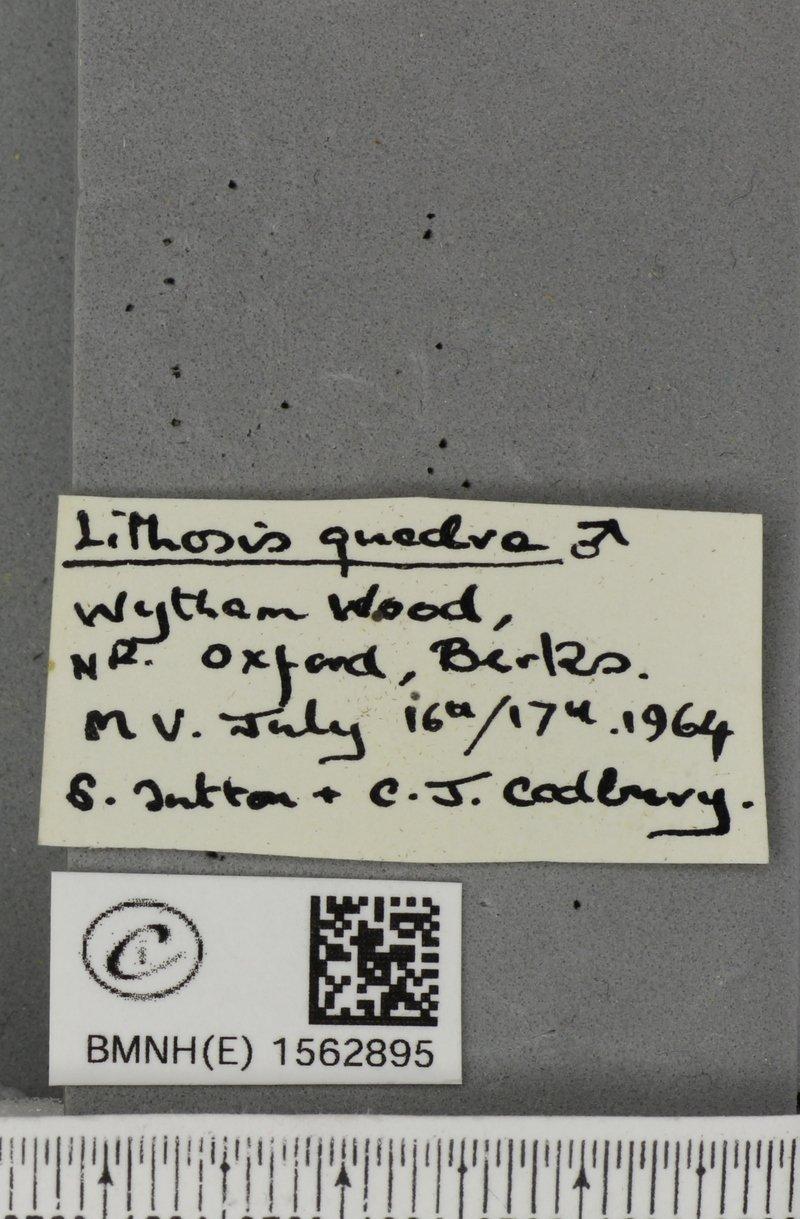 Lithosis quadra ♂
Wytham Wood,
NR. Oxford, Berks.
M V. July 16th/17th. 1964
S. Sutton + C. J. Cadbury.
C
BMNH(E) 1562895